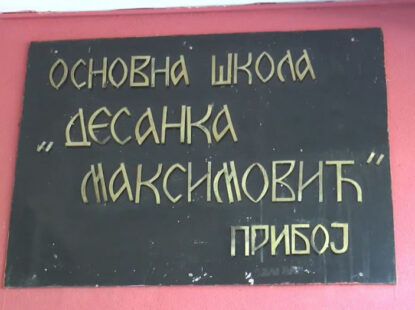 ОСНОВНА ШКОЛА
„ДЕСАНКА
МАКСИМОВИЋ”
ПРИБОЈ